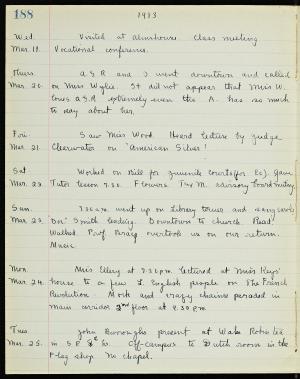 188
1913
Wed. Visited at almshouse. Class meeting
Mar. 19. Vocational conference.
Thurs. A.S.R. and I went downtown and called
Mar. 20. on Miss Wylie. It did not appear that Miss W.
loves A.S.R. extremely even tho A. has so much
to say about her.
Fri. Saw Miss Wood. Heard lecture by Judge
Mar. 21. Clearwater on "American Silver."
Sat. Worked on Bill for juvenile courts (for Ec). Gave
Mar. 22. Tutor lesson 7.30. Flowers. advisory board meeting.
Sun. 7.30 a.m. went up on Library tower and sang carols
Mar. 23. Smith leading. Downtown to church. Read.
Walked. Prof. overtook us on our return.
Music.
Mon. Miss Ellery at 7.30 p.m. lectured at Miss Keys'
Mar. 24. house to a few English people on The French
Revolution. Mock and crazy paraded in
main corridor 2nd floor at 9.30 P.M.
Tues. John Burroughs present at Wake Robin tea
Mar. 25. in Off-campus to Dutch room in the
Flag shop. chapel.